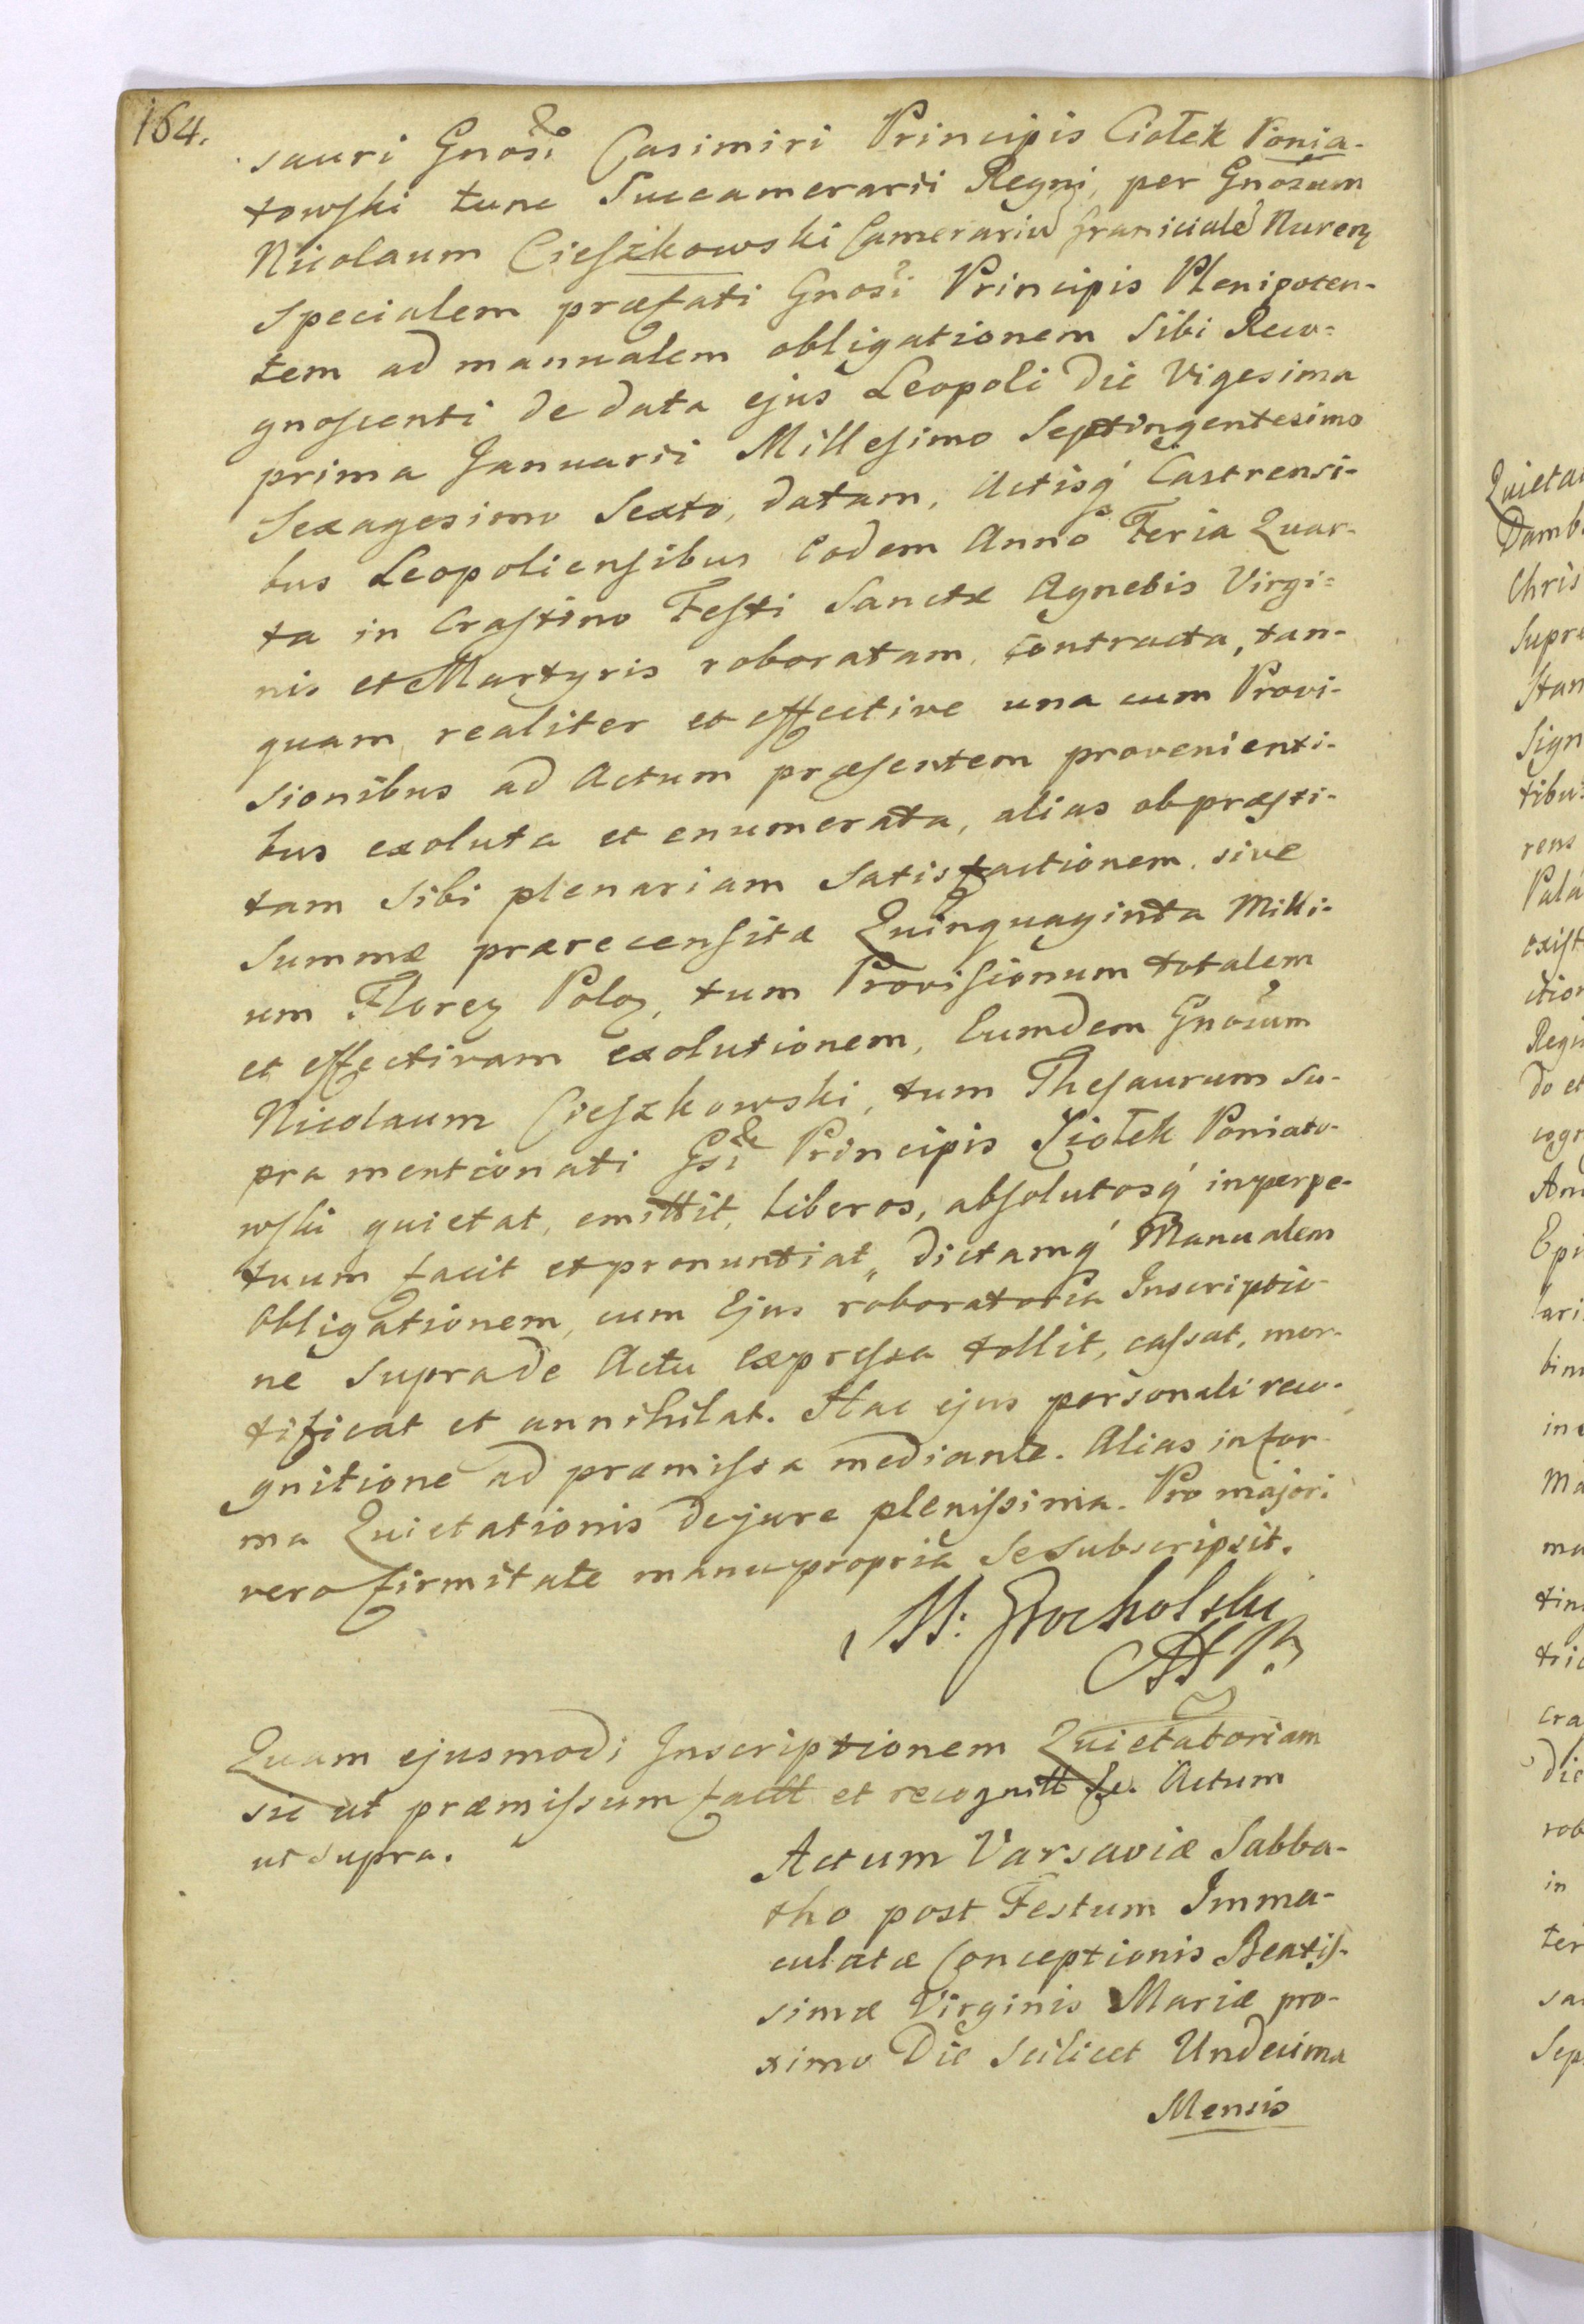 164.
sauri Gnosi Casimiri Principis Ciołek Ponia-
towski tunc Succamerarii Regni, per Gnosum
Nicolaum Cieszkowski Camerariu Graniciale Nuren
Specialem præfati Gnosi Principis Plenipoten-
tem ad manualem obligationem Sibi Reco-
gnoscenti de data ejus Leopoli Die Vigesima
prima Januarii Millesimo Septingentesimo
Sexagesimo Sexto, datam, Actisq Castrensi-
bus Leopoliensibus Eodem Anno Feria Quar-
ta in Crastino Festi Sanctæ Agnetis Virgi-
nis et Martyris roboratam, Contracta, tan-
quam realiter et effective una cum Provi-
sionibus ad Actum præsentem provenienti-
bus exoluta et enumerata, alias ob præsti-
tam Sibi plenariam Satisfactionem sive
Summæ prærecensitæ Quinquaginta Milli-
um Floren Polon, tum Provisionum totalem
et effectivam exolutionem, Eumdem Gnosum
Nicolaum Cieszkowski, tum Thesaurum Su-
pra mentionati Gsi Principis Ciołek Poniato-
wski quietat, emittit, liberos, absolutosq in perpe-
tuum facit et pronuntiat, dictamq Manualem
Obligationem, cum Ejus roboratoria Inscriptio-
ne Suprade Actu Expressa tollit, cassat, mor-
tificat et annihilat. Hac ejus personali reco-
gnitione ad præmissa mediante. Alias in for-
ma Quietationis de jure plenissima. Pro majori
vero firmitate manu propria Se subscripsit.
M: Grocholski
Quam ejusmodi Inscriptionem Quietatoriam
sic ut præmissum facit et recognitt Actum
ut supra.
Actum Varsaviæ Sabba-
tho post Festum Imma-
culatæ Conceptionis Beatis-
simæ Virginis Mariæ pro-
ximo Die Scilicet Undecima
Mensis